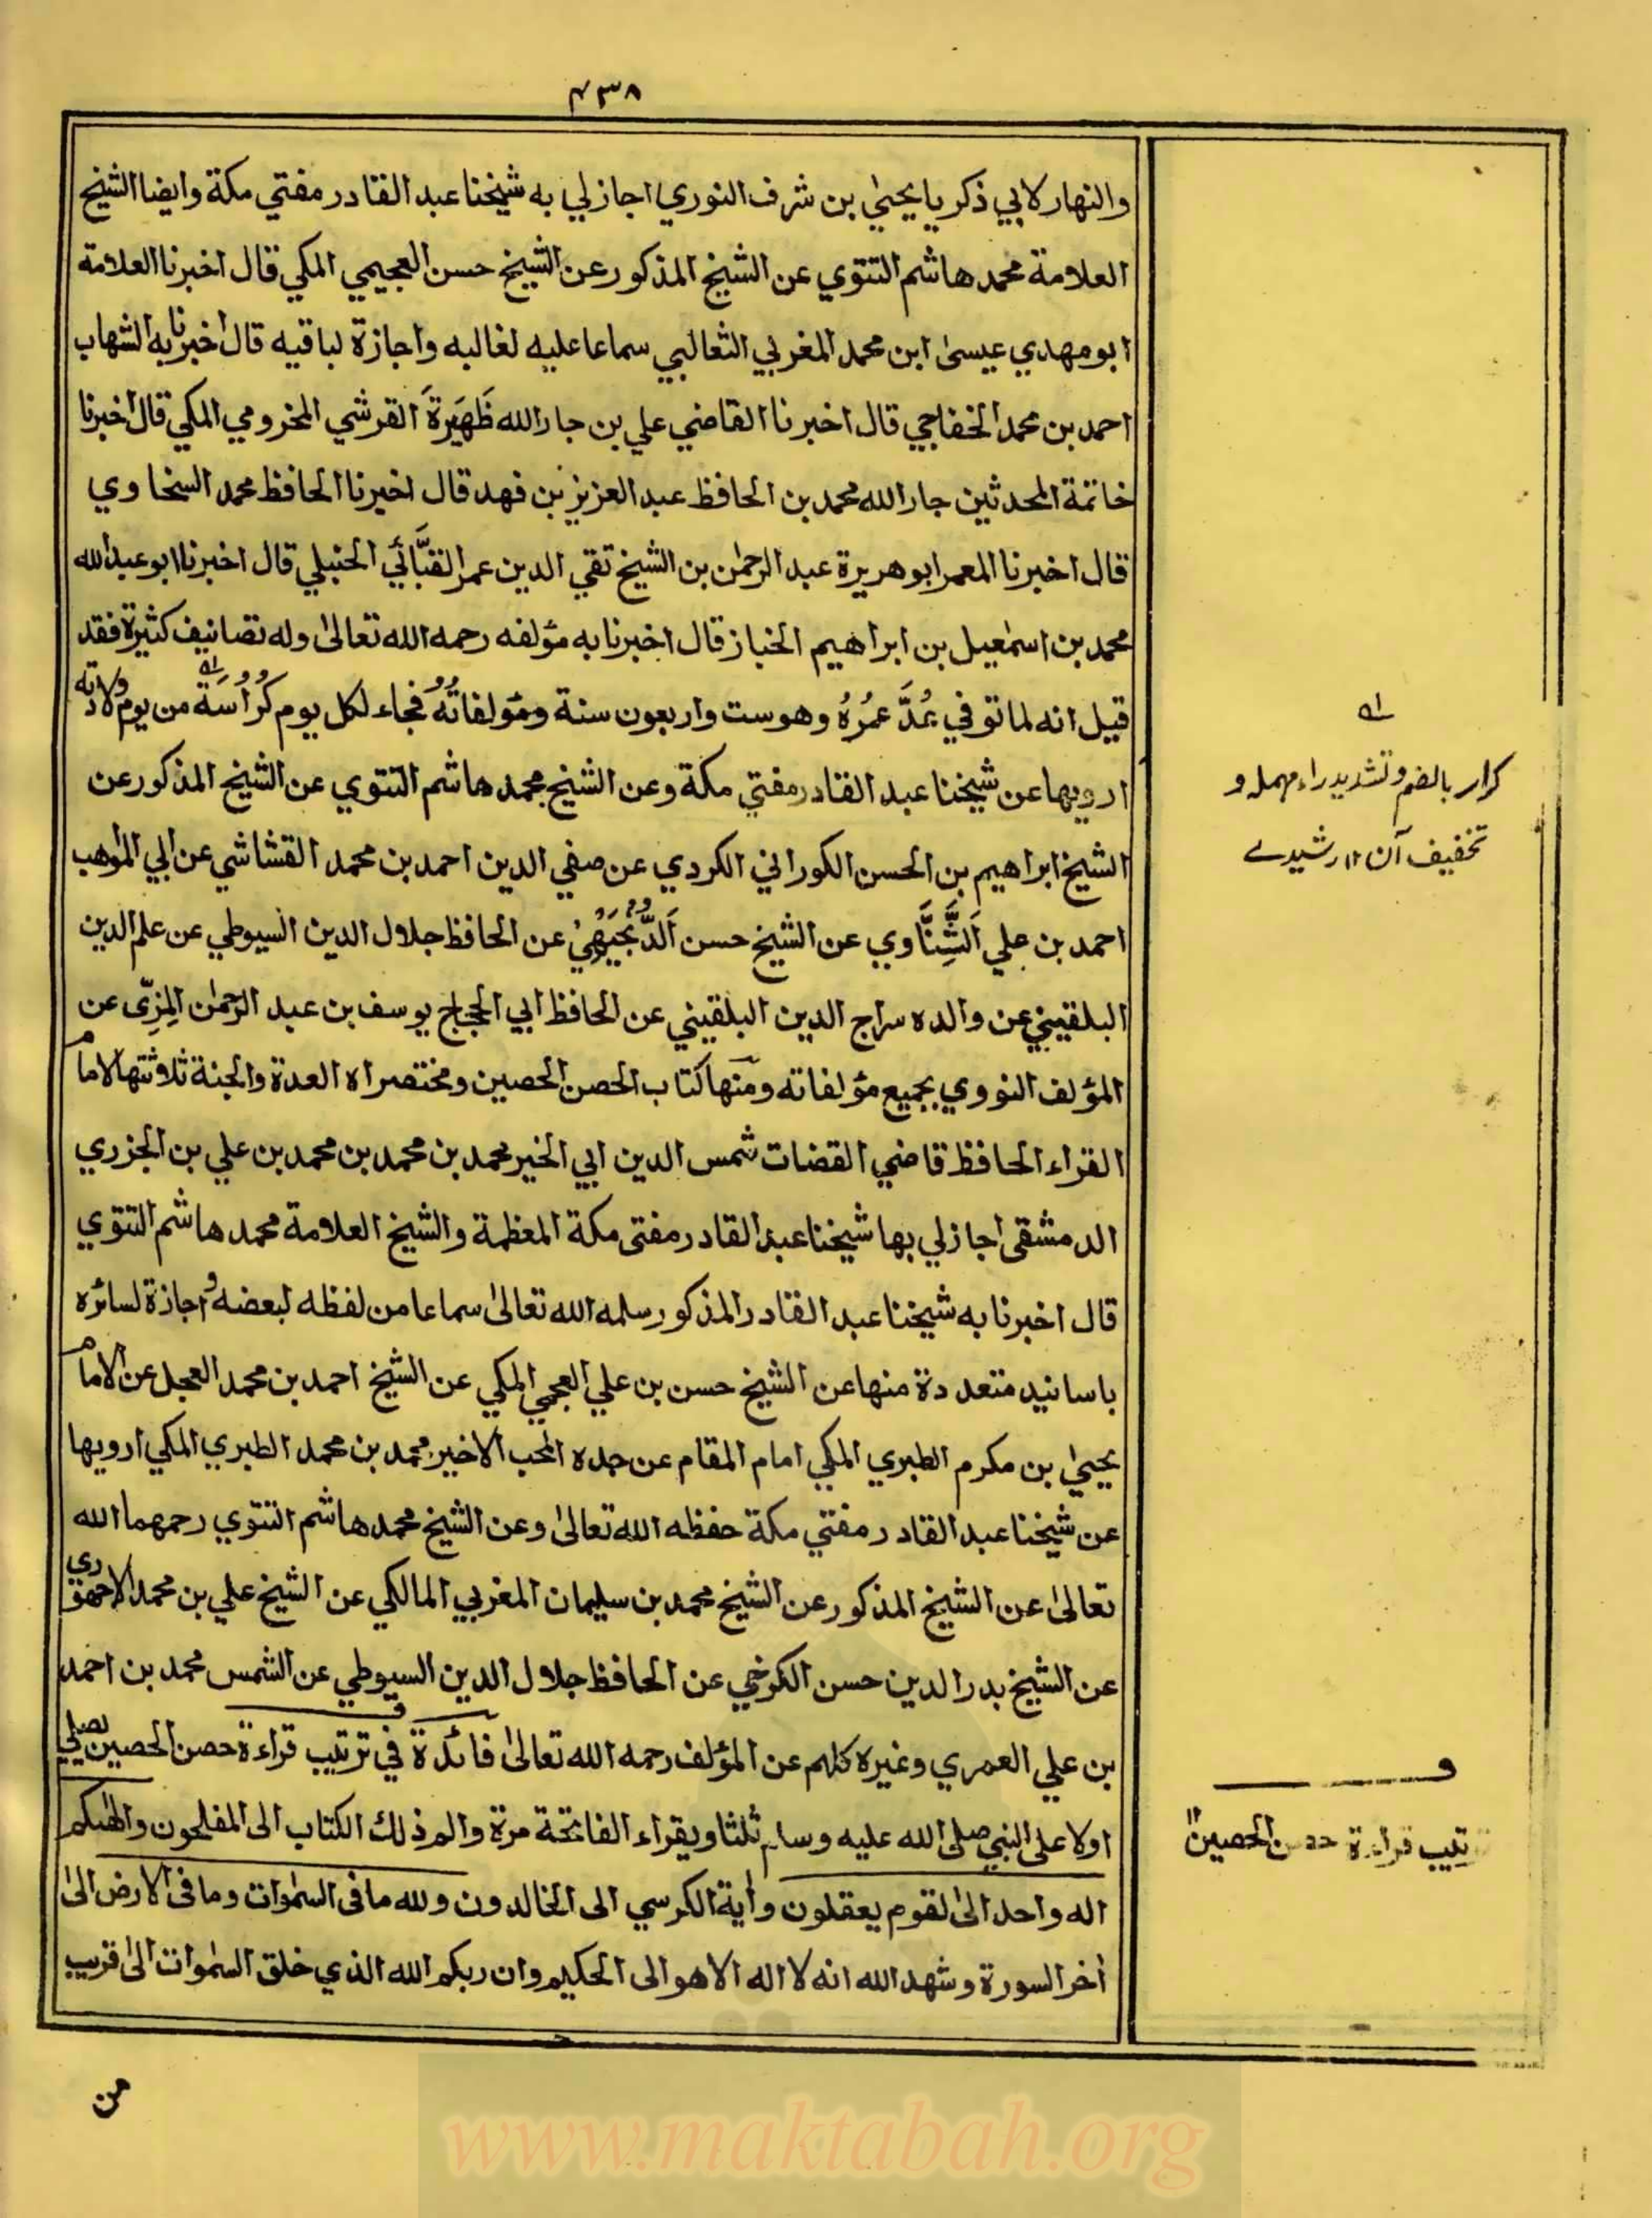 ۴۳۸
والنهار لابي ذكريا يحيىٰ بن شرف النوري اجازلي به شيخنا عبد القادر مفتي مكة وايضا الشيخ
العلامة محمد هاشم التتوي عن الشيخ المذكور عن الشيخ حسن العجيمي المكي قال اخبرنا العلامة
ابو مهدي عيسىٰ ابن محمد المغربي الثعالبي سماعا عليه لغالبه واجازة لباقيه قال اخبرنا به الشهاب
احمد بن محمد الخفاجي قال اخبرنا القاضي علي بن جار الله ظَهَيرَةَ القرشي المخرومي المكي قال اخبرنا
خاتمة المحدثين جار الله محمد بن الحافظ عبد العزيز بن فهد قال اخبرنا الحافظ محمد السخاوي
قال اخبرنا المعمر ابو هريرة عبد الرحمٰن بن الشيخ تقي الدين عمر القبَّائي الحنبلي قال اخبرنا ابو عبد الله
محمد بن اسمٰعيل بن ابراهيم الخباز قال اخبرنا به مؤلفه رحمه الله تعالىٰ وله تصانيف كثيرة فقد
قيل انه لما توفي عُدَّ عُمُرُهُ وهو ست واربعون سنة ومؤلفاتُهُ فجاء لكل يوم كُرُاسَة من يوم ولادته
ارويها عن شيخنا عبد القادر مفتي مكة وعن الشيخ محمد هاشم التتوي عن الشيخ المذكور عن
الشيخ ابراهيم بن الحسن الكوراني الكردي عن صفي الدين احمد بن محمد القشاشي عن ابي المواهب
احمد بن علي اَلشَّنَّاوي عن الشيخ حسن اَلدُّنْجَيهِيْ عن الحافظ جلال الدين السيوطي عن علم الدين
البلقيني عن والده سراج الدين البلقيني عن الحافظ ابي الحجاج يوسف بن عبد الرحمٰن المِزِّى عن
المؤلف النووي بجميع مؤلفاته ومنها كتاب الحصن الحصين ومختصراه العدة والجنة ثلاثتها لامام
القراء الحافظ قاضي القضات شمس الدين ابي الخير محمد بن محمد بن محمد بن علي بن الجزري
الدمشقى اجازلي بها شيخنا عبد القادر مفتى مكة المعظمة والشيخ العلامة محمد هاشم التتوي
قال اخبرنا به شيخنا عبد القادر المذكور سلمه الله تعالىٰ سماعا من لفظه لبعضه واجازة لسائره
باسانيد متعددة منها عن الشيخ حسن بن علي العجمي المكي عن الشيخ احمد بن محمد العجل عن الامام
يحيىٰ بن مكرم الطبري المكي امام المقام عن جده المحب الاخير محمد بن محمد الطبري المكي ارويها
عن شيخنا عبد القادر مفتي مكة حفظه الله تعالىٰ وعن الشيخ محمد هاشم التتوي رحمهما الله
تعالىٰ عن الشيخ المذكور عن الشيخ محمد بن سليمان المغربي المالكي عن الشيخ علي بن محمد الاجهوري
عن الشيخ بدر الدين حسن الكرخي عن الحافظ جلال الدين السيوطي عن الشمس محمد بن احمد
بن علي العمري وغيره كلهم عن المؤلف رحمه الله تعالىٰ فائدة في ترتيب قراءة حصن الحصين يصلي
اولا على النبي صلى الله عليه وسلم ثلثا ويقراء الفاتحة مرة والم ذلك الكتاب الى المفلحون والٰهكم
اله واحد الىٰ لقوم يعقلون واٰية الكرسي الى الخالدون ولله ما فى السمٰوات وما فى الارض الىٰ
اٰخر السورة وشهد الله انه لا اله الا هو الى الحكيم وان ربكم الله الذي خلق السمٰوات الىٰ قريب
من
كرار بالضم وتشديد راء مهمله و
تخفيف آن ١٢ رشيدے
ترتيب قراءة حصن الحصين ١٢
www.maktabah.org